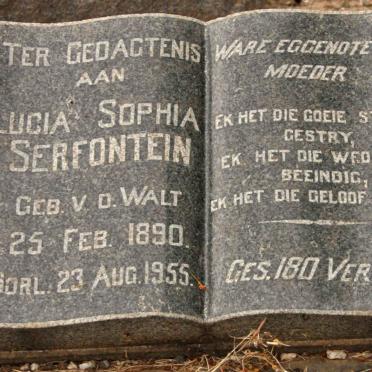 TER GEDAGTENIS
AAN
LUCIA SOPHIA
SERFONTEIN
GEB. V. D. WALT
25 FEB. 1890.
ORL. 23 AUG. 1955.
WARE EGGENOTE
MOEDER
EK HET DIE GOEIE S
GESTRY,
EK HET DIE WED
BEEINDIG,
EK HET DIE GELOOF
GES. 180 VER